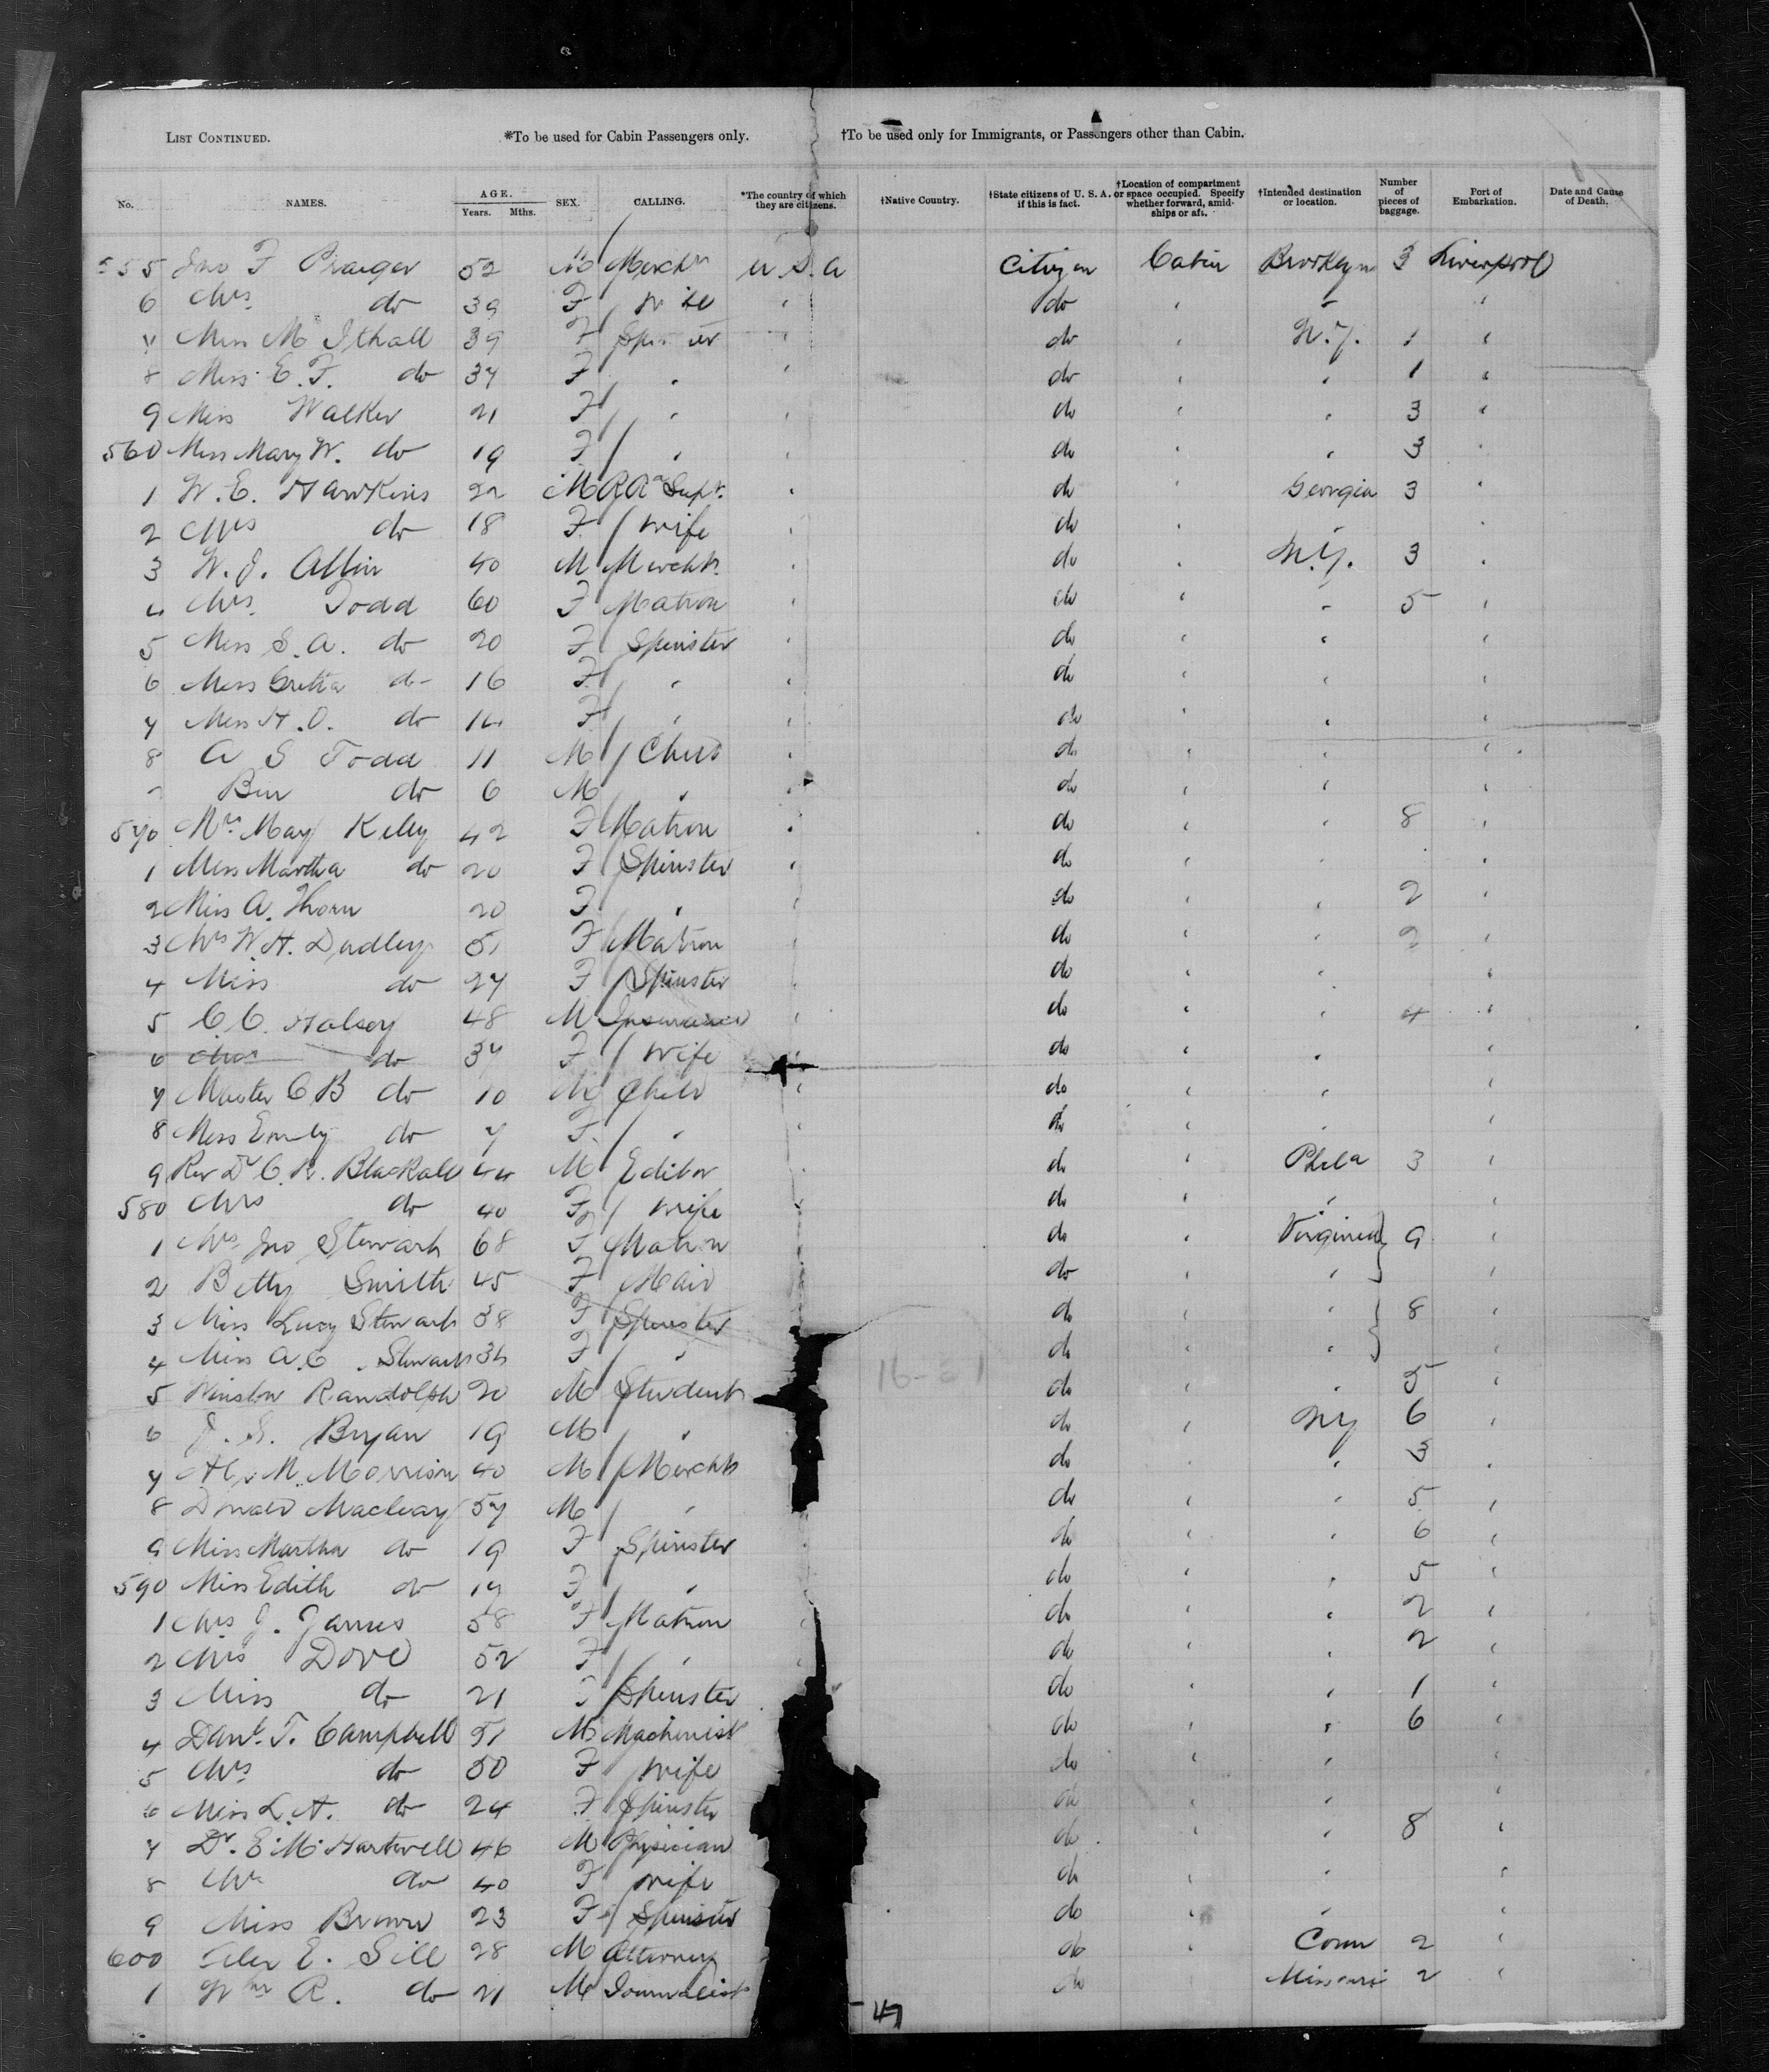 LIST CONTINUED. *To be used for Cabin Passengers only. †To be used only for Immigrants, or Passengers other than Cabin.
No. NAMES. AGE. Years. Mths. SEX. CALLING. *The country of which they are citizens. †Native Country. †State citizens of U. S. A. if this is fact. †Location of compartment or space occupied. Specify whether forward, amidships or aft. †Intended destination or location. Number of pieces of baggage. Port of Embarkation. Date and Cause of Death.
555 Jno F Praeger 52 M Mercht U.S.A Citizen Cabin Brooklyn 3 Liverpool
6 Mrs do 39 F Wife " do " " "
7 Miss M Ithall 39 F " do " N.Y. 1 "
8 Miss E.F. do 37 F " " do " " 1 "
9 Miss Walker 21 F " " do " " 3 "
560 Miss Mary W. do 19 F " " do " " 3 "
1 W.E. Hawkins 22 M R Rd Supt. " do " Georgia 3 "
2 Mrs do 18 F Wife " do " " "
3 W.J. Allin 40 M Merchts " do " N.Y. 3 "
4 Mrs Todd 60 F Matron " do " " 5 "
5 Miss S.A. do 20 F Spinster " do " " "
6 Miss do 16 F " " do " " "
7 Miss H.O. do 14 F " " do " " "
8 A S Todd 11 M Child " do " " "
" Ben do 6 M " " do " " "
570 Mrs May Kelly 42 F Matron " do " " 8 "
1 Miss Martha do 20 F Spinster " do " " "
2 Miss A. Thorn 20 F " " do " " 2 "
3 Mrs W.H. Dudley 51 F Matron " do " " 2 "
4 Miss do 27 F Spinster " do " " "
5 C.C. Halsey 48 M Insurance " do " " 4 "
6 Mrs do 37 F Wife " do " " "
7 Master C B do 10 M Child " do " " "
8 Miss Emily do 7 F " " do " " "
9 Rev Dr C.R. Blackall 44 M Editor " do " Phila 3 "
580 Mrs do 40 F Wife " do " " "
1 Mrs Jno Stewart 68 F Matron do " Virginia 9 "
2 Betty Smith 45 F Maid do " " "
3 Miss Lucy Stewart 38 F Spinster do " " 8 "
4 Miss A.C. Stewart 36 F " do " " "
5 Winston Randolph 20 M Student do " " 5 "
6 J. S. Bryan 19 M " do " NY 6 "
7 M. Morrison 40 M Merchts do " " 3 "
8 Donald Macleay 57 M " do " " 5 "
9 Miss Martha do 19 F Spinster do " " 6 "
590 Miss Edith do 17 F " do " " 5 "
1 Mrs J. James 58 F Matron do " " 2 "
2 Mrs Dove 52 F " do " " 2 "
3 Miss do 21 F Spinster do " " 1 "
4 Danl. T. Campbell 51 M Machinist do " " 6 "
5 Mrs do 50 F Wife do " " "
6 Miss L.A. do 24 F Spinster do " " "
7 Dr. E.M. Hartwell 46 M Physician do " " 8 "
8 Mrs do 40 F Wife do " " "
9 Miss Brown 23 F Spinster do " " "
600 E. Sill 28 M Attorney do " Conn 2 "
1 Wm R. do 21 M Journalist do Missouri 2 "
47